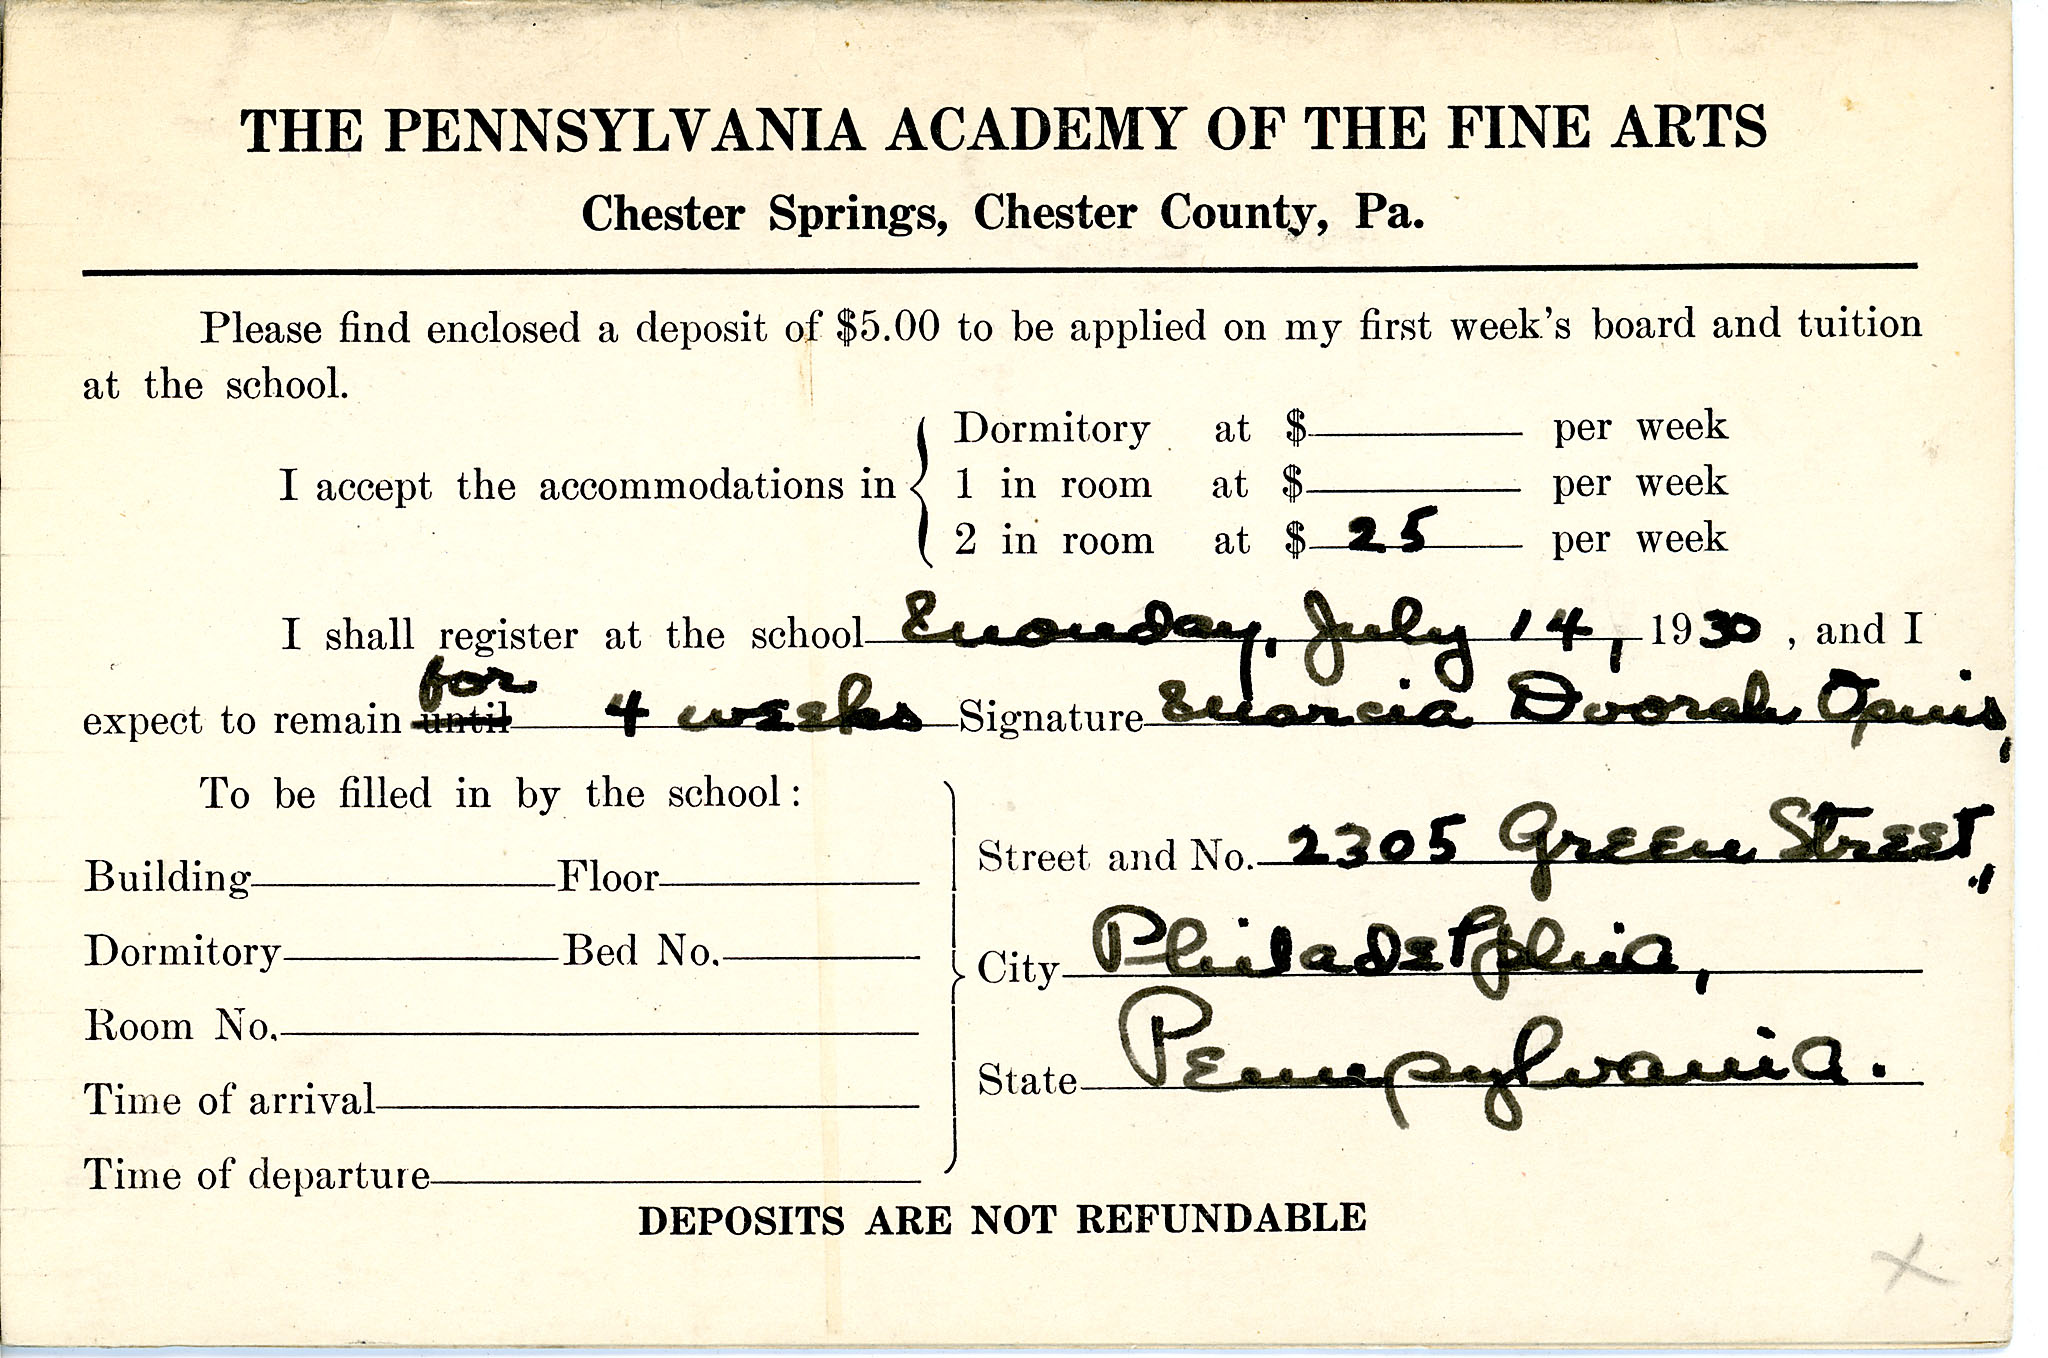 THE PENNSYLVANIA ACADEMY OF THE FINE ARTS
Chester Springs, Chester County, Pa.
Please find enclosed a deposit of $5.00 to be applied on my first week's board and tuition
at the school.
I accept the accommodations in
Dormitory at $ per week
1 in room at $ per week
2 in room at $ 25 per week
I shall register at the school Monday, July 14, 1930, and I
expect to remain until for 4 weeks Signature Marcia Dvorah Opuis,
To be filled in by the school:
Building Floor
Dormitory Bed No.
Room No.
Time of arrival
Time of departure
Street and No. 2305 Green Street,
City Philadelphia,
State Pennsylvania.
DEPOSITS ARE NOT REFUNDABLE
X